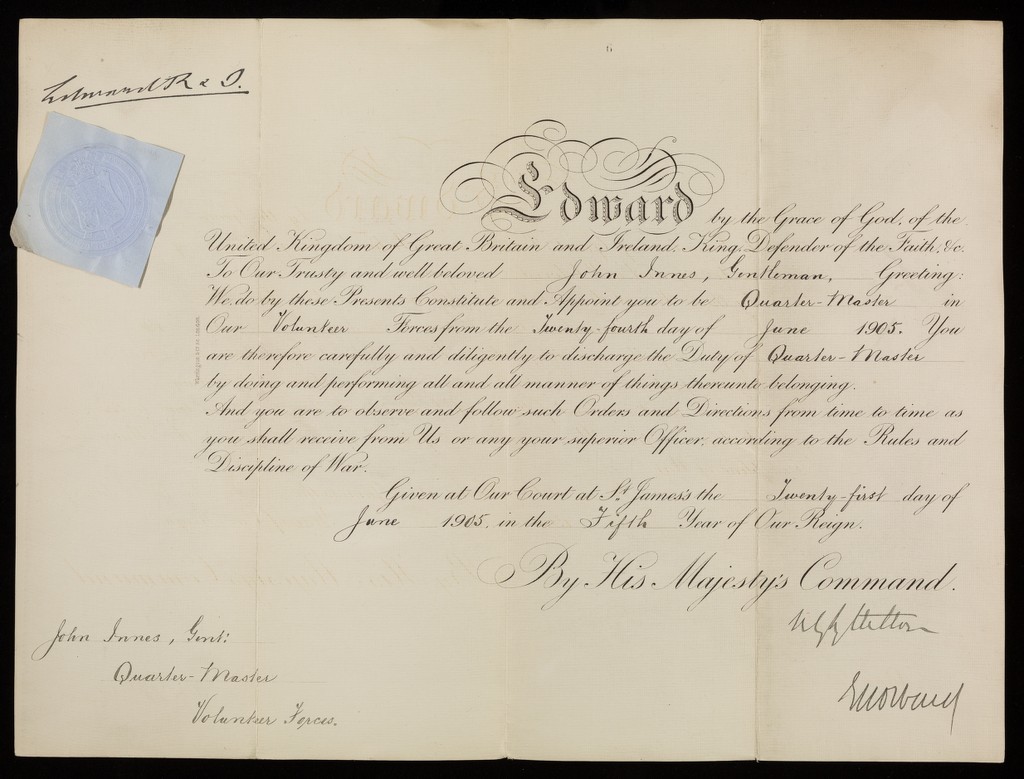 Edward R & I.
Edward by the Grace of God, of the
United Kingdom of Great Britain and Ireland, King, Defender of the Faith, &c.
To Our Trusty and well beloved John Innes, Gentleman, Greeting:
We do by these Presents Constitute and Appoint you to be Quarter-Master in
Our Volunteer Forces from the Twenty-fourth day of June 1905. You
are therefore carefully and diligently to discharge the Duty of Quarter-Master
by doing and performing all and all manner of things thereunto belonging.
And you are to observe and follow such Orders and Directions from time to time as
you shall receive from Us or any your superior Officer, according to the Rules and
Discipline of War.
Given at Our Court at St. James's the Twenty-first day of
June 1905. in the Fifth Year of Our Reign.
By His Majesty's Command.
EWDWard
John Innes, Gent:
Quarter-Master
Volunteer Forces.